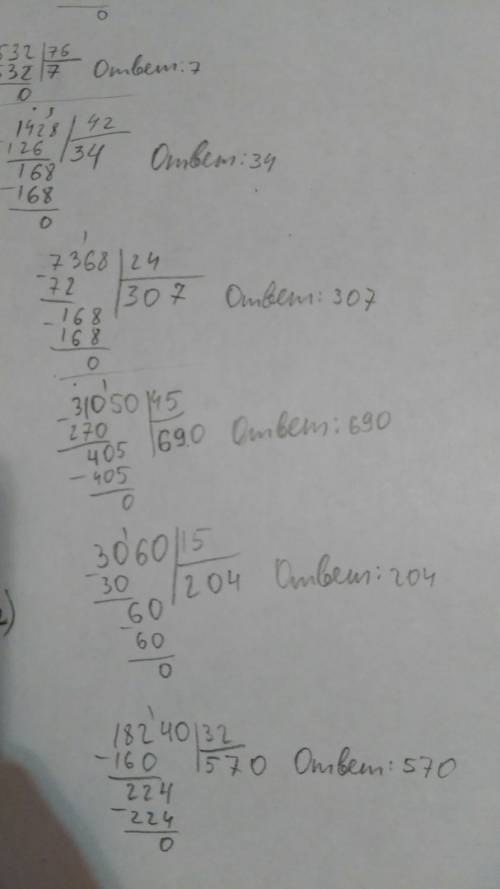 0
532 76
532 7 Ответ: 7
0
1428 42
126 34 Ответ: 34
168
-168
0
7368 24
-72 307 Ответ: 307
-168
168
0
-31050 45
270 690 Ответ: 690
405
-405
0
3060 15
-30 204 Ответ: 204
-60
60
0
18240 32
-160 570 Ответ: 570
224
-224
0